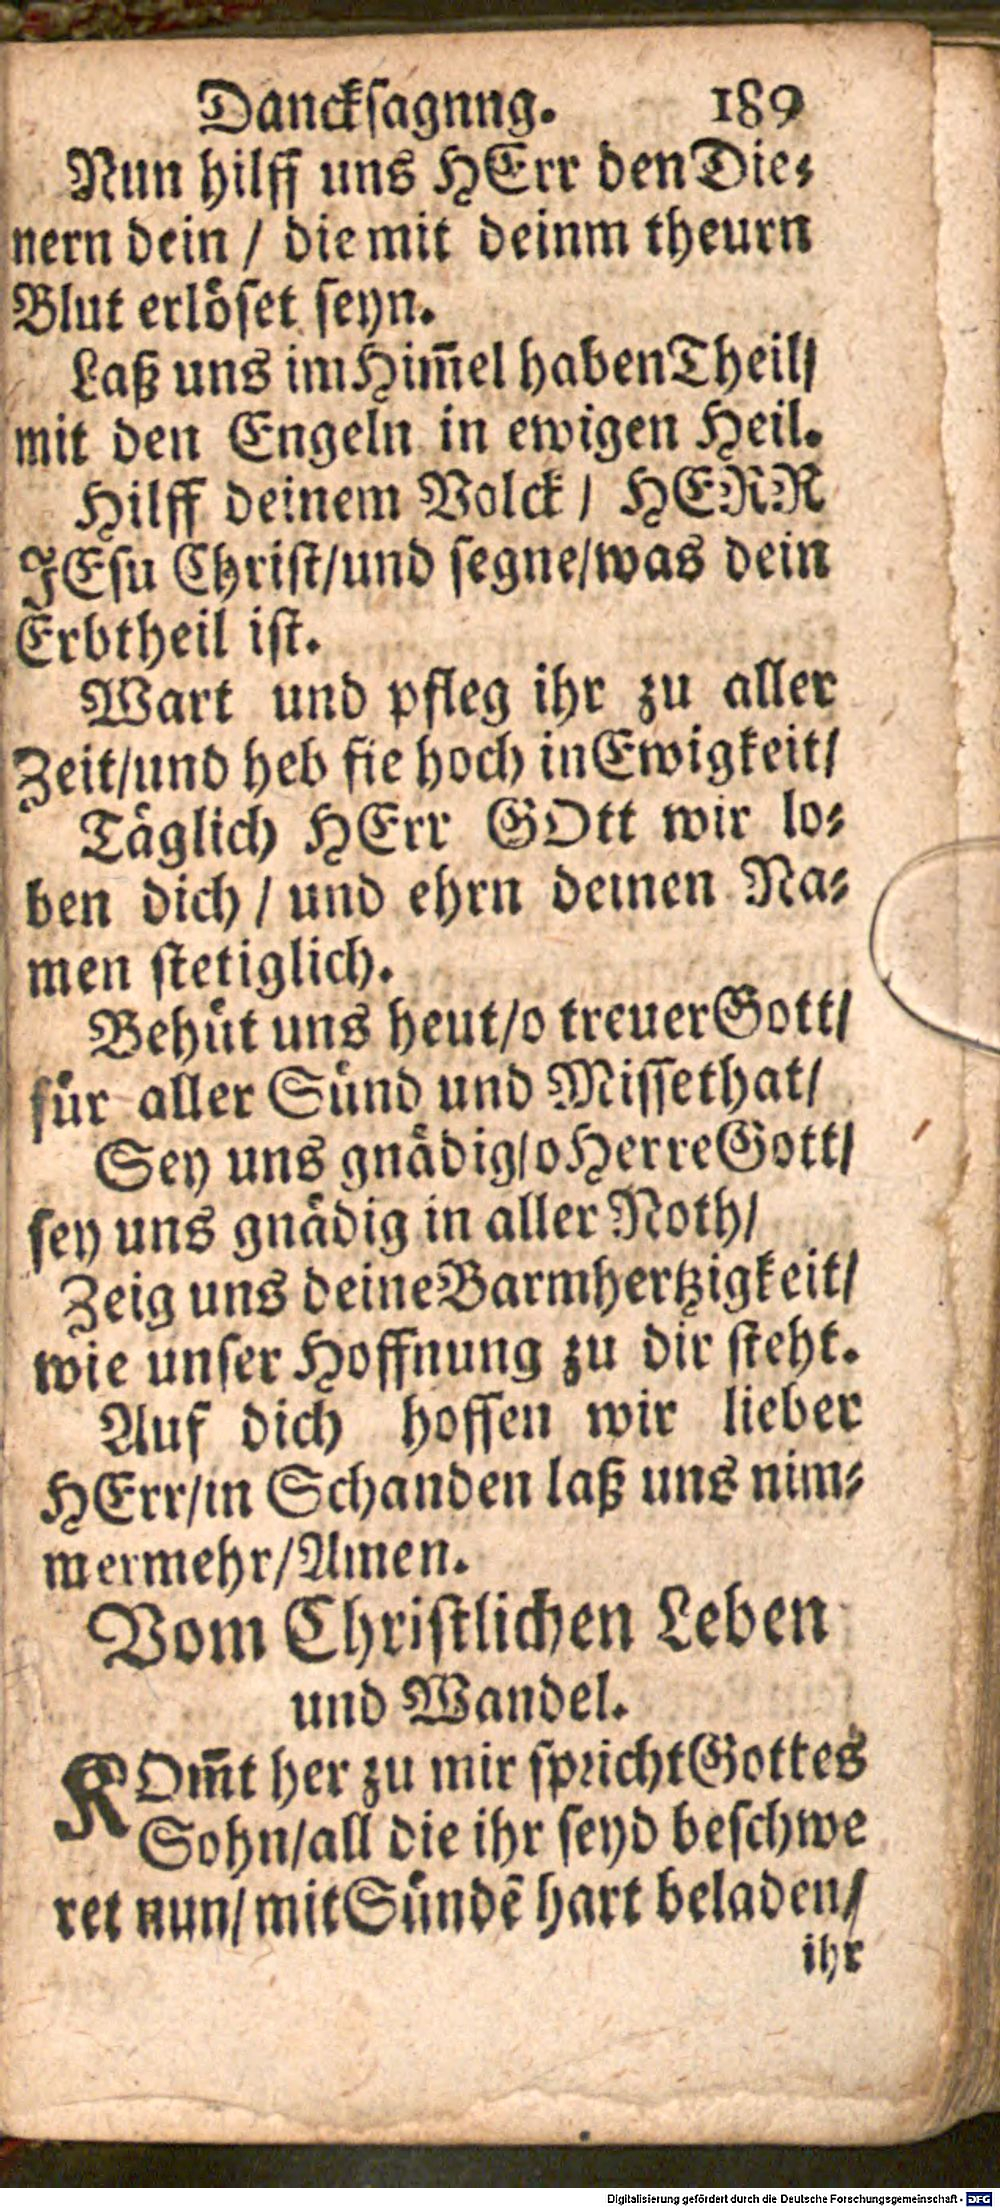 Dancksagnng. 189
Nun hilff uns HErr den Die⸗
nern dein / die mit deinm theurn
Blut erlöset seyn.
Laß uns im Him̄el haben Theil/
mit den Engeln in ewigen Heil.
Hilff deinem Volck / HERR
JEsu Christ/und segne/was dein
Erbtheil ist.
Wart und pfleg ihr zu aller
Zeit/und heb sie hoch in Ewigkeit/
Täglich HErr GOtt wir lo⸗
ben dich / und ehrn deinen Na⸗
men stetiglich.
Behüt uns heut/o treuer Gott/
für aller Sünd und Missethat/
Sey uns gnädig/o Herre Gott/
sey uns gnädig in aller Noth/
Zeig uns deine Barmhertzigkeit/
wie unser Hoffnung zu dir steht.
Auf dich hoffen wir lieber
HErr/in Schanden laß uns nim⸗
mermehr/Amen.
Vom Christlichen Leben
und Wandel.
KOm̄t her zu mir spricht Gottes
Sohn/all die ihr seyd beschwe
ret nun/mit Sündē hart beladen/
ihr
Digitalisierung gefördert durch die Deutsche Forschungsgemeinschaft - DFG